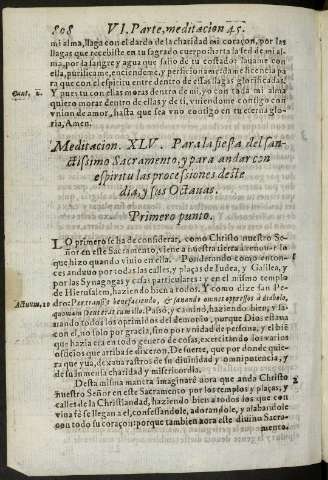 808 VI. Parte, meditacion 45.
mi alma, llaga con el dardo de la charidad mi coraçon, por las
llagas que recebiste en tu sagrado cuerpo: harta la sed de mi al-
ma, por la sangre y agua que salio de tu costado: lauame con
ella, purificame, enciendeme, y perficioname: dame licencia pa
ra que con el espiritu entre dentro destas llagas glorificadas.
Cant. 2. Y pues tu con ellas moras dentro de mi, yo con toda mi alma
quiero morar dentro de ellas y de ti, viuiendome contigo con
vnion de amor, hasta que sea vno contigo en tu eterna gloria,
Amen.
Meditacion. XLV. Para la fiesta del san-
ctissimo Sacramento, y para andar con
espiritu las processiones deste
dia, y sus Octauas.
Primero punto.
LO primero se ha de considerar, como Christo nuestro Se-
ñor en este Sacramento, viene a nuestra tierra a renouar lo
que hizo quando vinio en ella. Ponderando como enton- 1
ces anduuo por todas las calles, y plaças de Iudea, y Galilea, y
por las Synagogas y casas particulares: y en el mismo templo
de Hierusalem, haziendo bien a todos. Y como dize san Pe-
Actuum. 10 dro: Pertransijt benefaciendo, & sanando omnes oppressos à diabolo,
quoniam Deus erat cum illo. Passò, y caminò, haziendo bien, y sa-
nando todos los oprimidos del demonio, porque Dios estaua
con el, no solo por gracia, sino por vnidad de persona, y el biẽ
que hazia era en todo genero de cosas, exercitando los varios
oficios que arriba se dixeron. De suerte, que por donde quie-
ra que yua, dexaua rastros de su diuinidad y omnipotencia, y
de su inmensa charidad y misericordia.
Desta misma manera imaginarè aora que anda Christo 2
nuestro Señor en este Sacramento por los templos y plaças, y
calles de la Christiandad, haziendo bien a todos los que con
viua fè se llegan a el, confessandole, adorandole, y alabandole
con todo su coraçon: porque tambien aora este diuino Sacra-
mento.